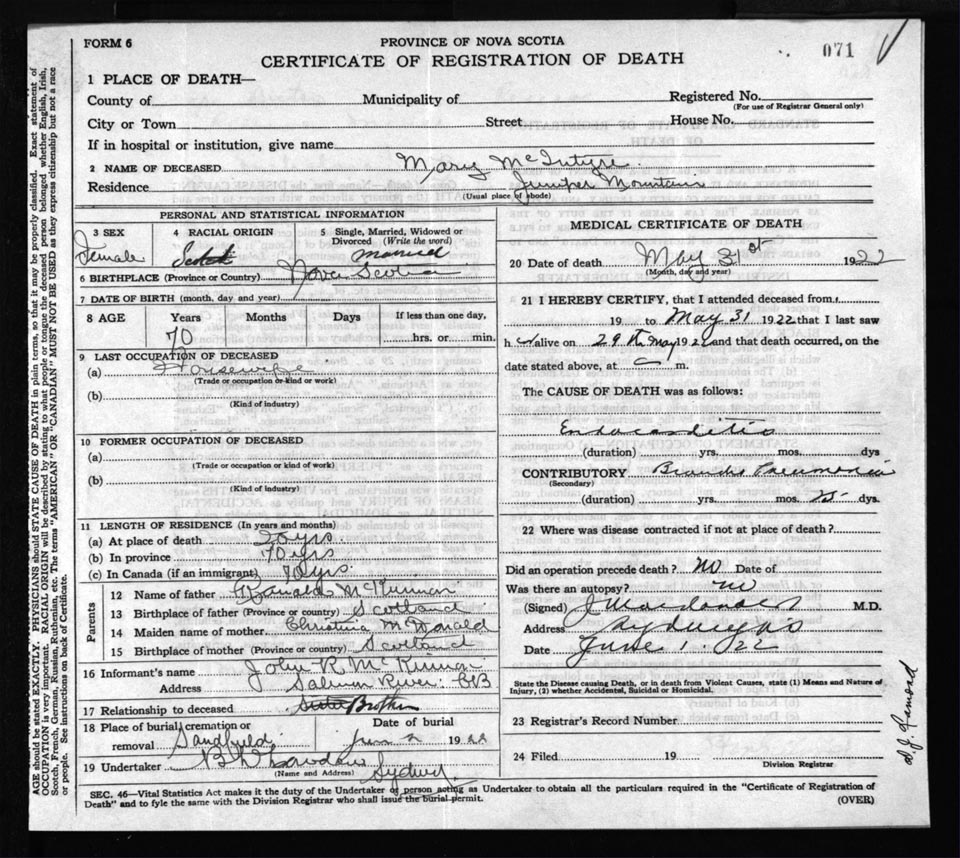 FORM 6
PROVINCE OF NOVA SCOTIA
071
CERTIFICATE OF REGISTRATION OF DEATH
1 PLACE OF DEATH—
County of Municipality of Registered No.
(For use of Registrar General only)
City or Town Street House No.
If in hospital or institution, give name
2 NAME OF DECEASED Mary McIntyre
Residence Juniper Mountain
(Usual place of abode)
PERSONAL AND STATISTICAL INFORMATION
3 SEX 4 RACIAL ORIGIN 5 Single, Married, Widowed or
Divorced (Write the word)
Female Scotch Married
6 BIRTHPLACE (Province or Country) Nova Scotia
7 DATE OF BIRTH (month, day and year)
8 AGE Years Months Days If less than one day,
70 hrs. or min.
9 LAST OCCUPATION OF DECEASED
(a) Housewife
(Trade or occupation or kind or work)
(b)
(Kind of industry)
10 FORMER OCCUPATION OF DECEASED
(a)
(Trade or occupation or kind of work)
(b)
(Kind of industry)
11 LENGTH OF RESIDENCE (In years and months)
(a) At place of death 50 yrs.
(b) In province 70 yrs
(c) In Canada (if an immigrant) 70 yrs.
Parents
12 Name of father Ranald McKinnon
13 Birthplace of father (Province or country) Scotland
14 Maiden name of mother Christina McDonald
15 Birthplace of mother (Province or country) Scotland
16 Informant's name John R. McKinnon
Address Salmon River CB
17 Relationship to deceased Sister Brother
18 Place of burial, cremation or Date of burial
removal Sandfield June 2 1922
19 Undertaker Sydney
(Name and Address)
MEDICAL CERTIFICATE OF DEATH
20 Date of death May 31st 1922
(Month, day and year)
21 I HEREBY CERTIFY, that I attended deceased from
19 to May 31 1922 that I last saw
h er alive on 29th May 1922 and that death occurred, on the
date stated above, at m.
The CAUSE OF DEATH was as follows:
Endocarditis
(duration) yrs. mos. dys
CONTRIBUTORY Broncho Pneumonia
(Secondary)
(duration) yrs. mos. dys.
22 Where was disease contracted if not at place of death?
Did an operation precede death? No Date of
Was there an autopsy? no
(Signed) J Macdonald M.D.
Address Sydney NS
Date June 1. 22
State the Disease causing Death, or in death from Violent Causes, state (1) Means and Nature of
Injury, (2) whether Accidental, Suicidal or Homicidal.
23 Registrar's Record Number
24 Filed 19
Division Registrar
SEC. 46—Vital Statistics Act makes it the duty of the Undertaker of person acting as Undertaker to obtain all the particulars required in the "Certificate of Registration of
Death" and to fyle the same with the Division Registrar who shall issue the burial permit. (OVER)
AGE should be stated EXACTLY. PHYSICIANS should STATE CAUSE OF DEATH in plain terms, so that it may be properly classified. Exact statement of
OCCUPATION is very important. RACIAL ORIGIN will be described by stating to what people or tongue the deceased person belonged whether English, Irish,
Scotch, French, German, Russian, Ruthenian, etc. The terms "AMERICAN" OR "CANADIAN" MUST NOT BE USED as they express citizenship but not a race
or people. See instructions on back of Certificate.